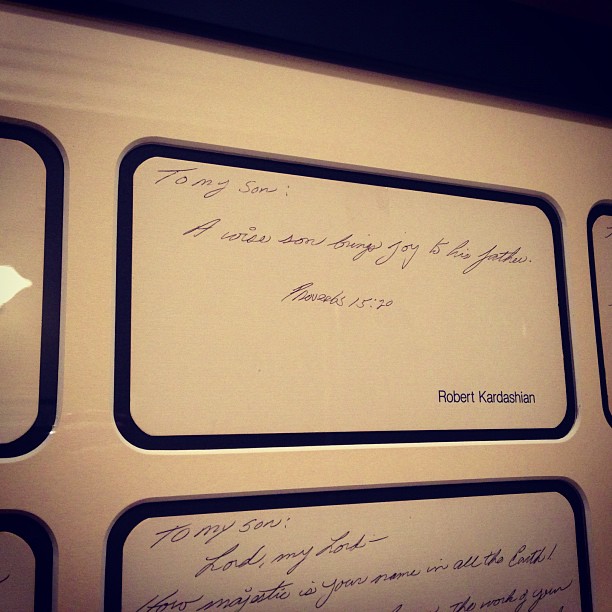 To my Son:
A wise son brings joy to his father.
Proverbs 15:20
Robert Kardashian
To my son:
Lord, my Lord—
How majestic is your name in all the Earth!
the work of your